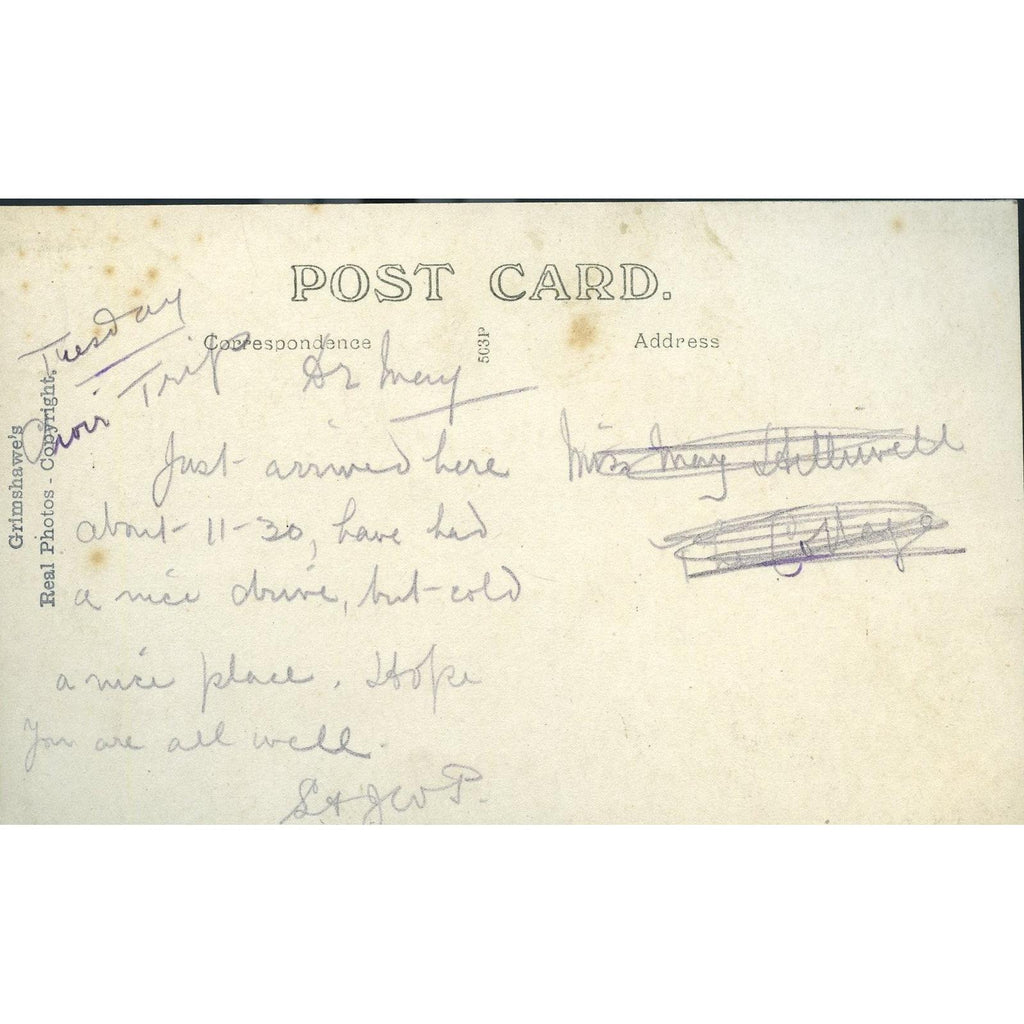 POST CARD.
Correspondence
503P
Address
Grimshawe's
Real Photos - Copyright.
Tuesday
Choir Trip
Dr May
Just arrived here
about 11-30, have had
a nice drive, but cold
a nice place. Hope
You are all well.
J W P.
Miss May Halliwell